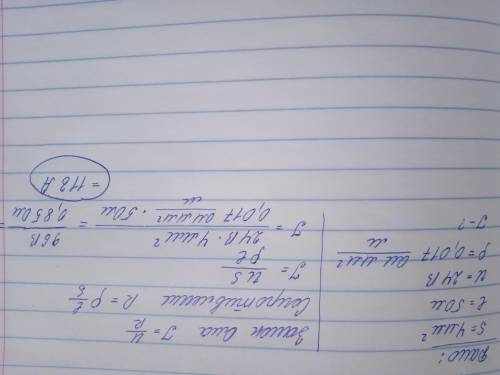 Дано:
S = 4 мм²
l = 50 м
U = 24 В
ρ = 0,017 Ом мм² / м
I - ?
Закон Ома I = U / R
Сопротивление R = ρ l / S
I = U S / ρ l
I = 24 В · 4 мм² / 0,017 Ом мм² / м · 50 м = 96 В / 0,85 Ом =
= 112 А